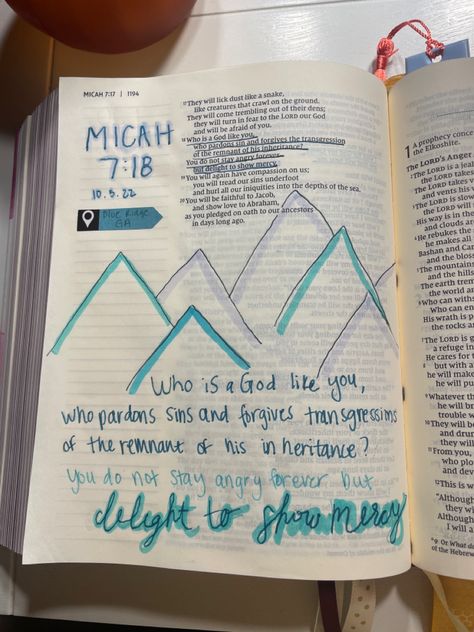 MICAH 7:17 | 1194
MICAH
7:18
10.5.22
Blue Ridge
GA
17 They will lick dust like a snake,
like creatures that crawl on the ground.
They will come trembling out of their dens;
they will turn in fear to the LORD our God
and will be afraid of you.
18 Who is a God like you,
who pardons sin and forgives the transgression
of the remnant of his inheritance?
You do not stay angry forever
but delight to show mercy.
19 You will again have compassion on us;
you will tread our sins underfoot
and hurl all our iniquities into the depths of the sea.
20 You will be faithful to Jacob,
and show love to Abraham,
as you pledged on oath to our ancestors
in days long ago.
Who is a God like you,
who pardons sins and forgives transgressions
of the remnant of his inheritance?
You do not stay angry forever but
delight to show mercy
1 A prophecy conce
the Elkoshite.
The LORD's Anger
2 The LORD is a jeal
the LORD takes v
The LORD takes v
and vents his w
3 The LORD is slow
the LORD will
His way is in the
and clouds ar
4 He rebukes the
he makes all
Bashan and Car
and the bloss
5 The mountains
and the hills
The earth trem
the world an
6 Who can with
Who can en
His wrath is p
the rocks a
7 The LORD is g
a refuge in
He cares for
8 but with a
he will make
he will pu
9 Whatever th
he will b
trouble w
10 They will be
and drun
they will
11 From you,
who plo
and dev
12 This is w
"Although
they wi
Although
I will a
of the Hebrew